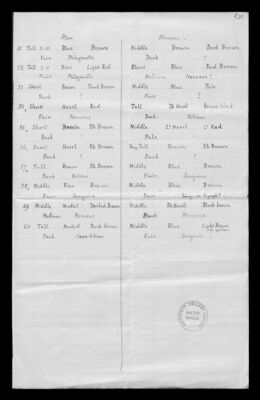 Men Women
51 Tall 5-10 Blue Brown Middle Brown Dark Brown
Fair Phlegmatic Dark "
52 Tall 5-11 Blue Light Red Short Blue Dark Brown
Fair Phlegmatic Medium Nervous ?
53 Short Brown Dark Brown Middle Blue Fair
Dark " Fair ?
54 Short Hazel Red Tall Dk Hazel Brown-black
Fair Nervous Dark Bilious
55 Short Brown Dk Brown Middle Lt Hazel Lt Red
Dark " Pale "
56 Short Hazel Dk Brown Very Tall Brown Dk Brown
Dark " Dark "
57 Tall Brown Dk Brown Middle Blue Brown
Dark Bilious Fair Sanguine
58 Middle Blue Brown Middle Blue Brown
Fair Sanguine Fair
59 Middle Neutral Dark Brown Middle Dk Hazel Black brown
Medium Nervous Dark Nervous
60 Tall Neutral Dark Brown Middle Blue Light Brown
Dark Fair Sanguine
UNIVERSITY COLLEGE
GALTON
PAPERS